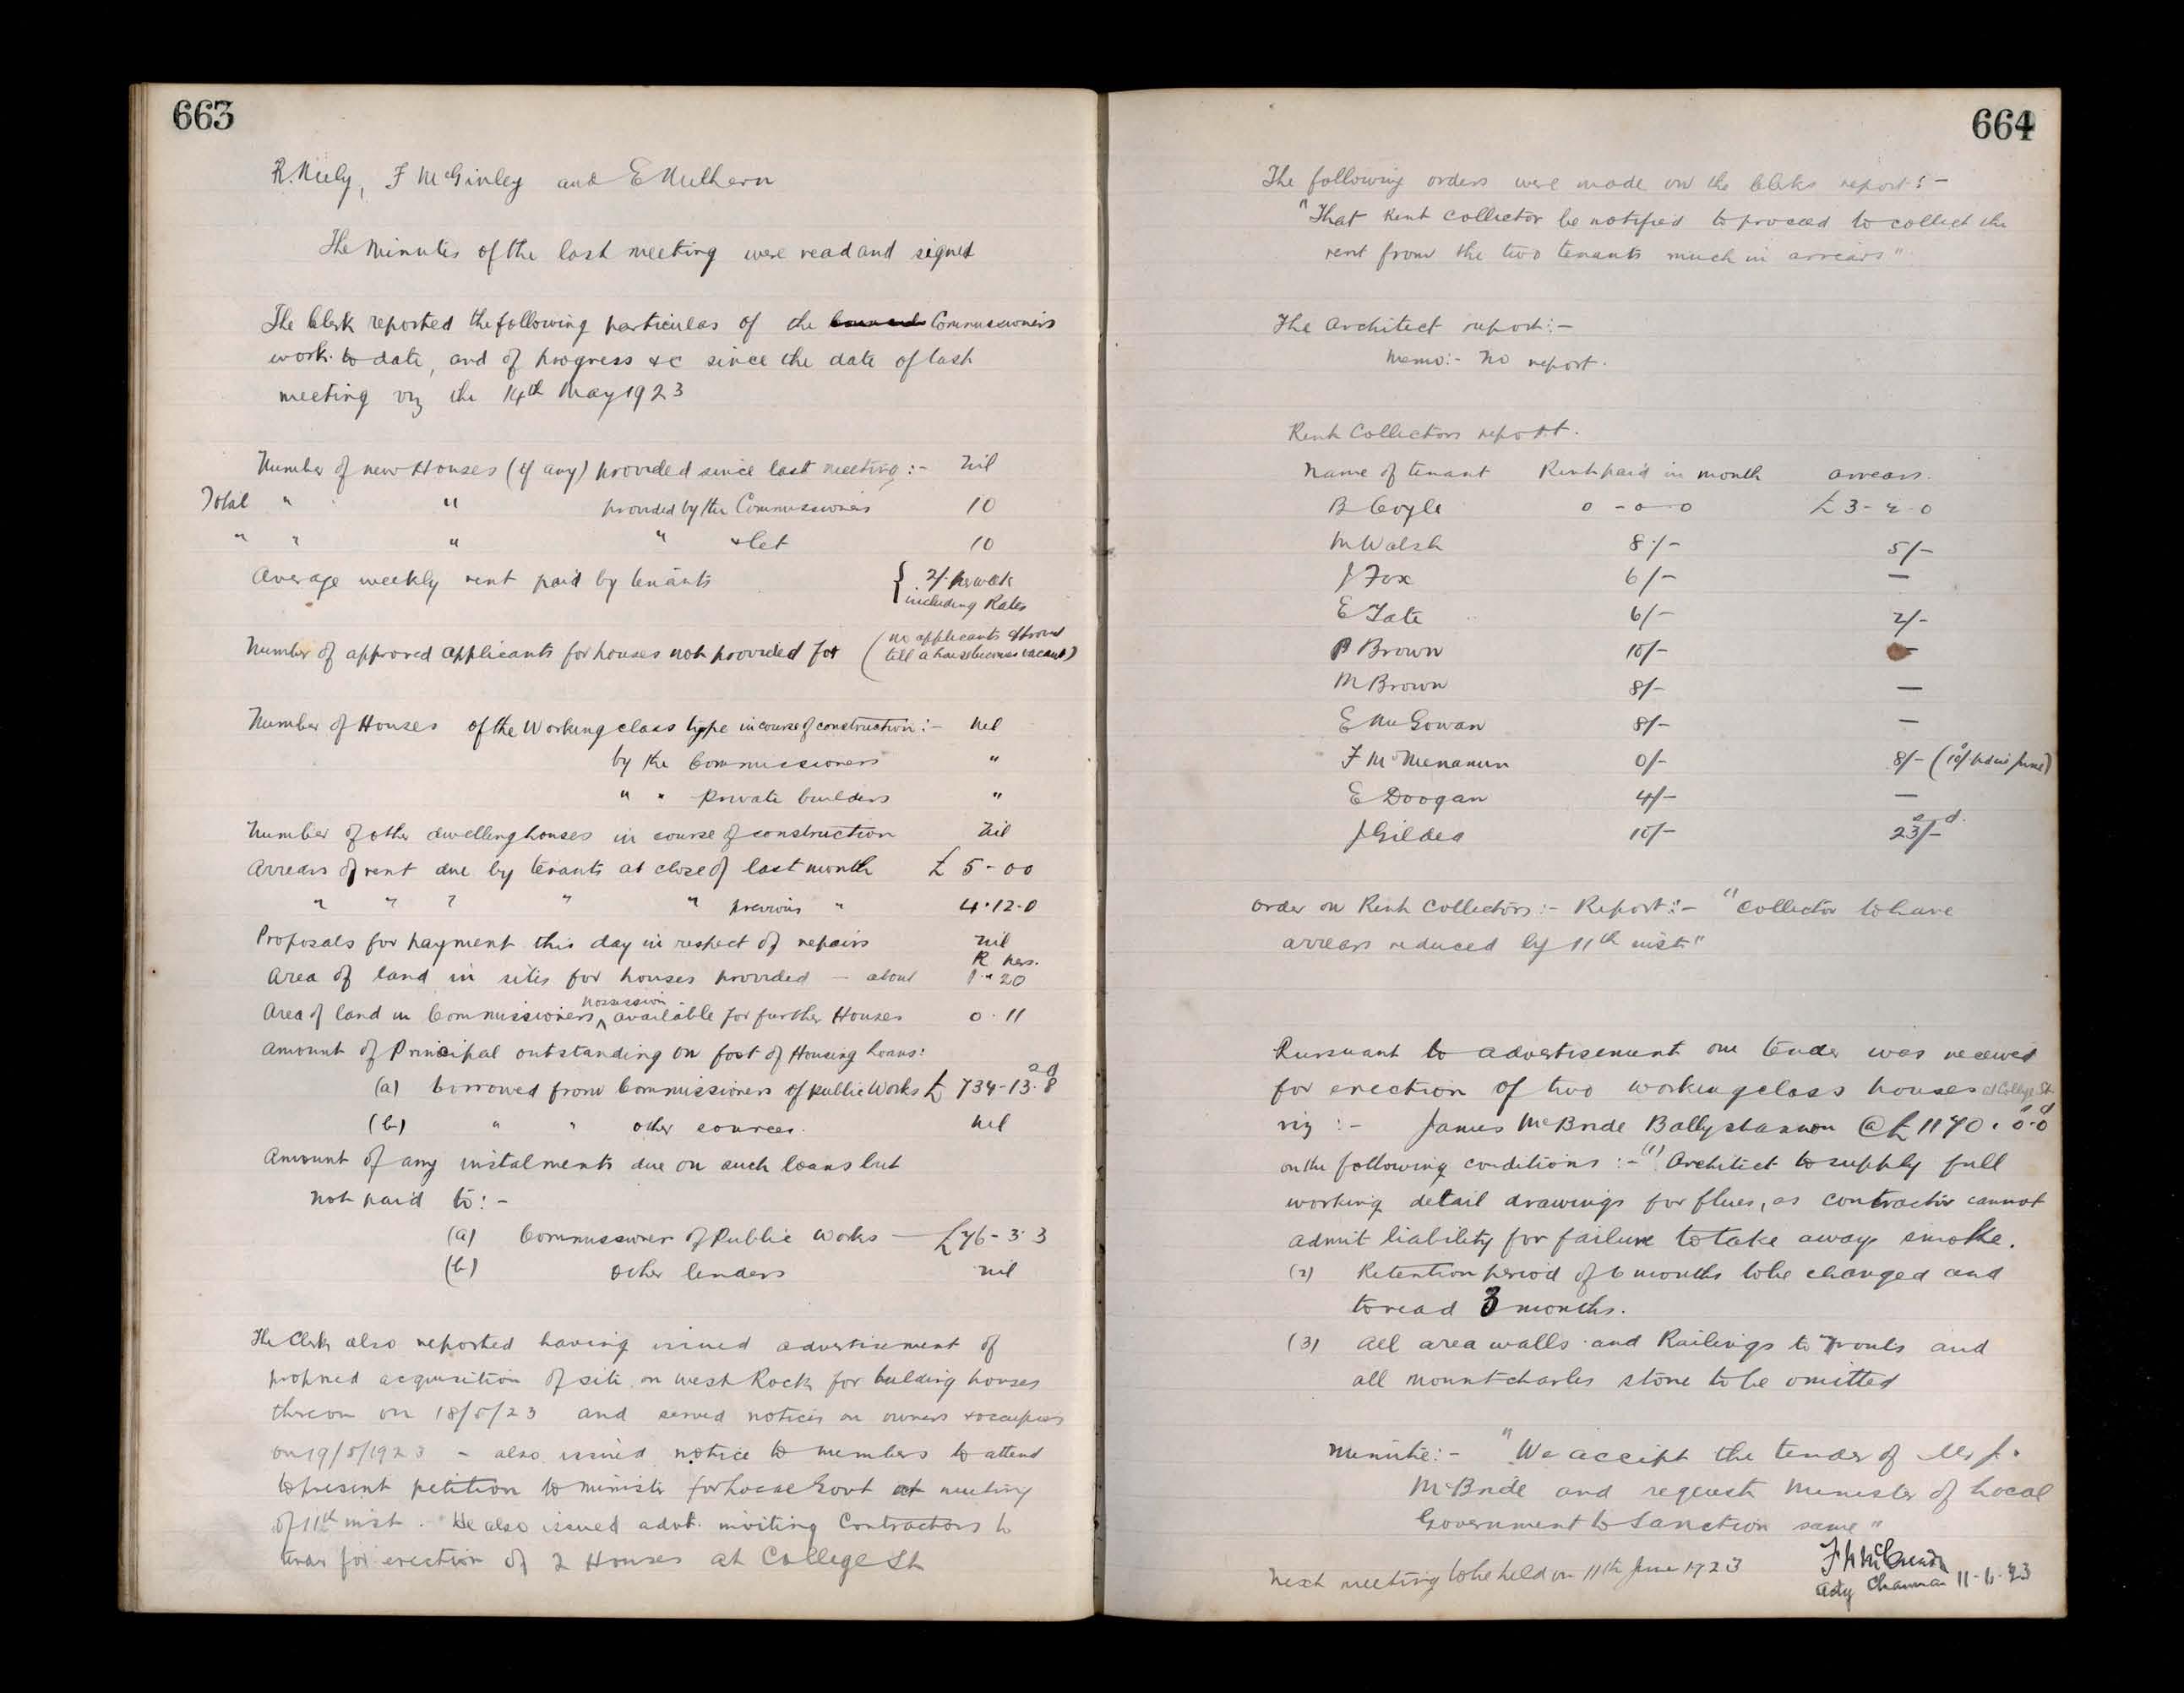 663
R. Neely, F McGinley and E Mulhern
The Minutes of the last meeting were read and signed
The Clerk reported the following particulas of the Commissioners
work to date, and of progress &c since the date of last
meeting viz the 14th May 1923
Number of new Houses (if any) provided since last meeting :- Nil
Total " " provided by the Commissioners 10
" " " " & let 10
Average weekly rent paid by tenants { 2/- per week
including Rates
Number of approved applicants for houses not provided for (no applicants approved
till a house becomes vacant)
Number of Houses of the Working class type in course of construction :- Nil
by the Commissioners "
" " Private builders "
Number of other dwelling houses in course of construction Nil
Arrears of rent due by tenants at close of last month £ 5-0 0
" " " " " previous " 4.12.0
Proposals for payment this day in respect of repairs Nil
R pers.
Area of land in sites for houses provided - about 1 " 20
Area of land in Commissioners possession available for further Houses 0.11
Amount of Principal outstanding on foot of Housing Loans:
(a) borrowed from Commissioners of public Works £ 734-13.8
(b) " " other sources. nil
Amount of any instalments due on such loans but
not paid to :-
(a) Commissioner of Public Works £76-3.3
(b) Other lenders nil
The Clerk also reported having issued advertisement of
proposed acquisition of site on West Rock for building houses
thereon on 18/5/23 and served notices on owners & occupiers
on 19/5/1923 - also issued notice to members to attend
to present petition to Minister for Local Govt at meeting
of 11th inst. He also issued advt. inviting Contractors to
tender for erection of 2 Houses at College St
664
The following orders were made on the Clerks report :-
"That Rent Collector be notified to proceed to collect the
rent from the two tenants much in arrears"
The Architect report :-
Memo :- No report.
Rent Collectors report.
Name of tenant Rent paid in month arrears.
B Coyle 0-0-0 £3-2.0
M Walsh 8/- 5/-
J Fox 6/- —
E Tate 6/- 2/-
P Brown 10/- -
M Brown 8/- —
E McGowan 8/- —
F McMenamin 0/- 8/- (10/- pd in June)
E Doogan 4/- —
J Gildea 10/- 23/-
Order on Rent Collectors :- Report :- "Collector to have
arrears reduced by 11th inst"
Pursuant to advertisement one tender was received
for erection of two working class houses at College St
viz :- James McBride Ballyshannon @ £1170.0.0
on the following conditions :- (1) Architect to supply full
working detail drawings for flues, as contractor cannot
admit liability for failure to take away smoke.
(2) Retention period of 6 months to be changed and
to read 3 months.
(3) All area walls and Railings to fronts and
all mountcharles stone to be omitted
Minute :- "We accept the tender of Mr J.
McBride and request Minister of Local
Government to Sanction same"
Next meeting to be held on 11th June 1923
Actg Chairman 11-6-23